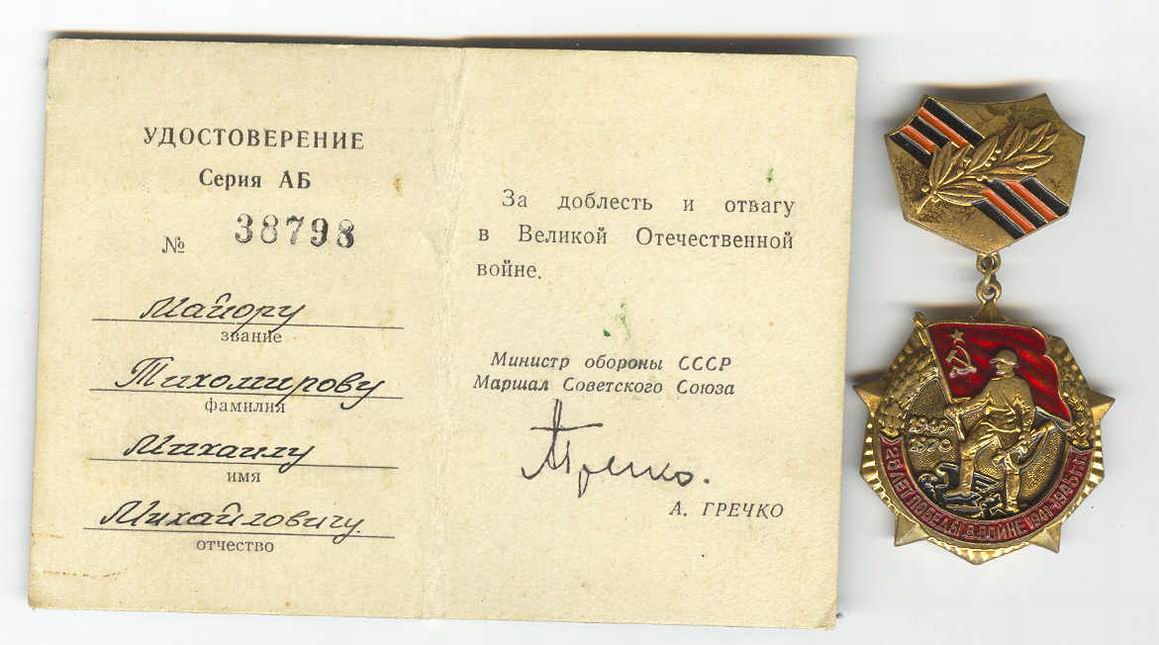 УДОСТОВЕРЕНИЕ
Серия АБ
№ 38798
Майору
звание
Тихомирову
фамилия
Михаилу
имя
Михайловичу.
отчество
За доблесть и отвагу
в Великой Отечественной
войне.
Министр обороны СССР
Маршал Советского Союза
АГречко.
А. ГРЕЧКО
1945
1970
25 ЛЕТ ПОБЕДЫ В ВОЙНЕ 1941-1945гг.